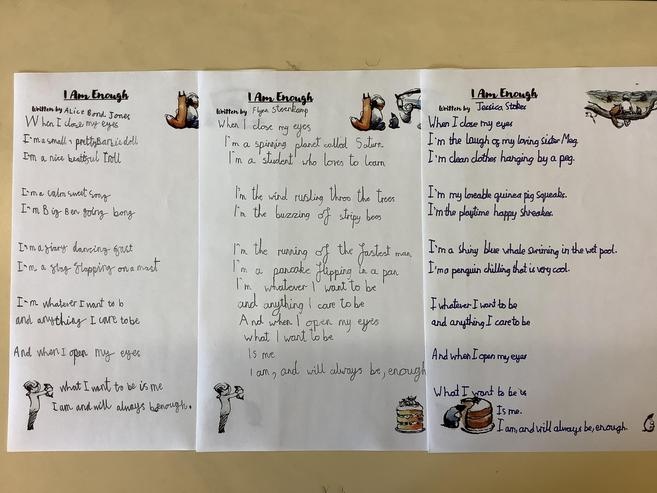 I Am Enough
Written by Alice Bond Jones
When I close my eyes
I'm a small & pretty Barbie doll
I'm a nice beatiful Troll
I'm a calm sweet song
I'm Big Ben going bong
I'm a dancing
I'm a flag flapping on a mast
I'm whatever I want to b
and anything I care to be
And when I open my eyes
what I want to be is me
I am and will always be enough.
I Am Enough
Written by Flynn Steenkamp
When I close my eyes
I'm a spinning planet called Saturn
I'm a student who loves to learn
I'm the wind rusling throo the trees
I'm the buzzing of stripy bees
I'm the running of the fastest man
I'm a pancake flipping in a pan
I'm whatever I want to be
and anything I care to be
And when I open my eyes
what I want to be
Is me
I am, and will always be, enough
I Am Enough
Written by Jessica Stokes
When I close my eyes
I'm the laugh of my loving sister Meg.
I'm clean clothes hanging by a peg.
I'm my loveable guinea pig Squeaks.
I'm the playtime happy shreakes.
I'm a shiny blue whale swimming in the wet pool.
I'm a penguin chilling that is very cool.
I whatever I want to be
and anything I care to be
And when I open my eyes
What I want to be is
Is me.
I am, and will always be, enough.